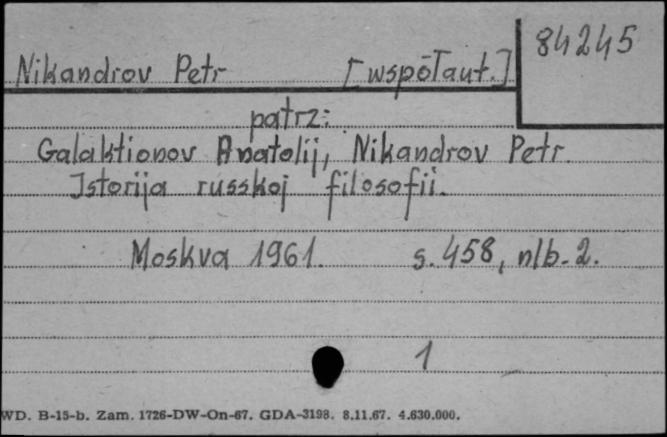 84245
Nikandrov Petr [współaut.]
patrz:
Galaktionov Anatolij, Nikandrov Petr.
Istorija russkoj filosofii.
Moskva 1961. s. 458, nlb. 2.
1
WD. B-15-b. Zam. 1726-DW-On-67. GDA-3198. 8.11.67. 4.630.000.